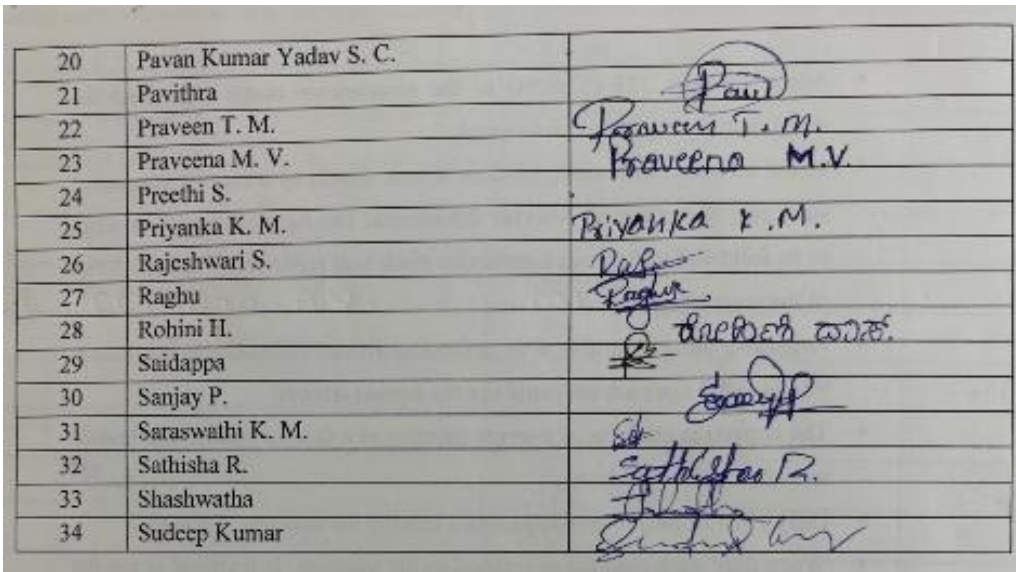 20 Pavan Kumar Yadav S. C.
21 Pavithra Pavi
22 Praveen T. M. Praveen T. M.
23 Praveena M. V. Praveena M.V.
24 Preethi S.
25 Priyanka K. M. Priyanka K.M.
26 Rajeshwari S.
27 Raghu Raghu
28 Rohini H.
29 Saidappa
30 Sanjay P.
31 Saraswathi K. M.
32 Sathisha R. Sathisha R.
33 Shashwatha
34 Sudeep Kumar